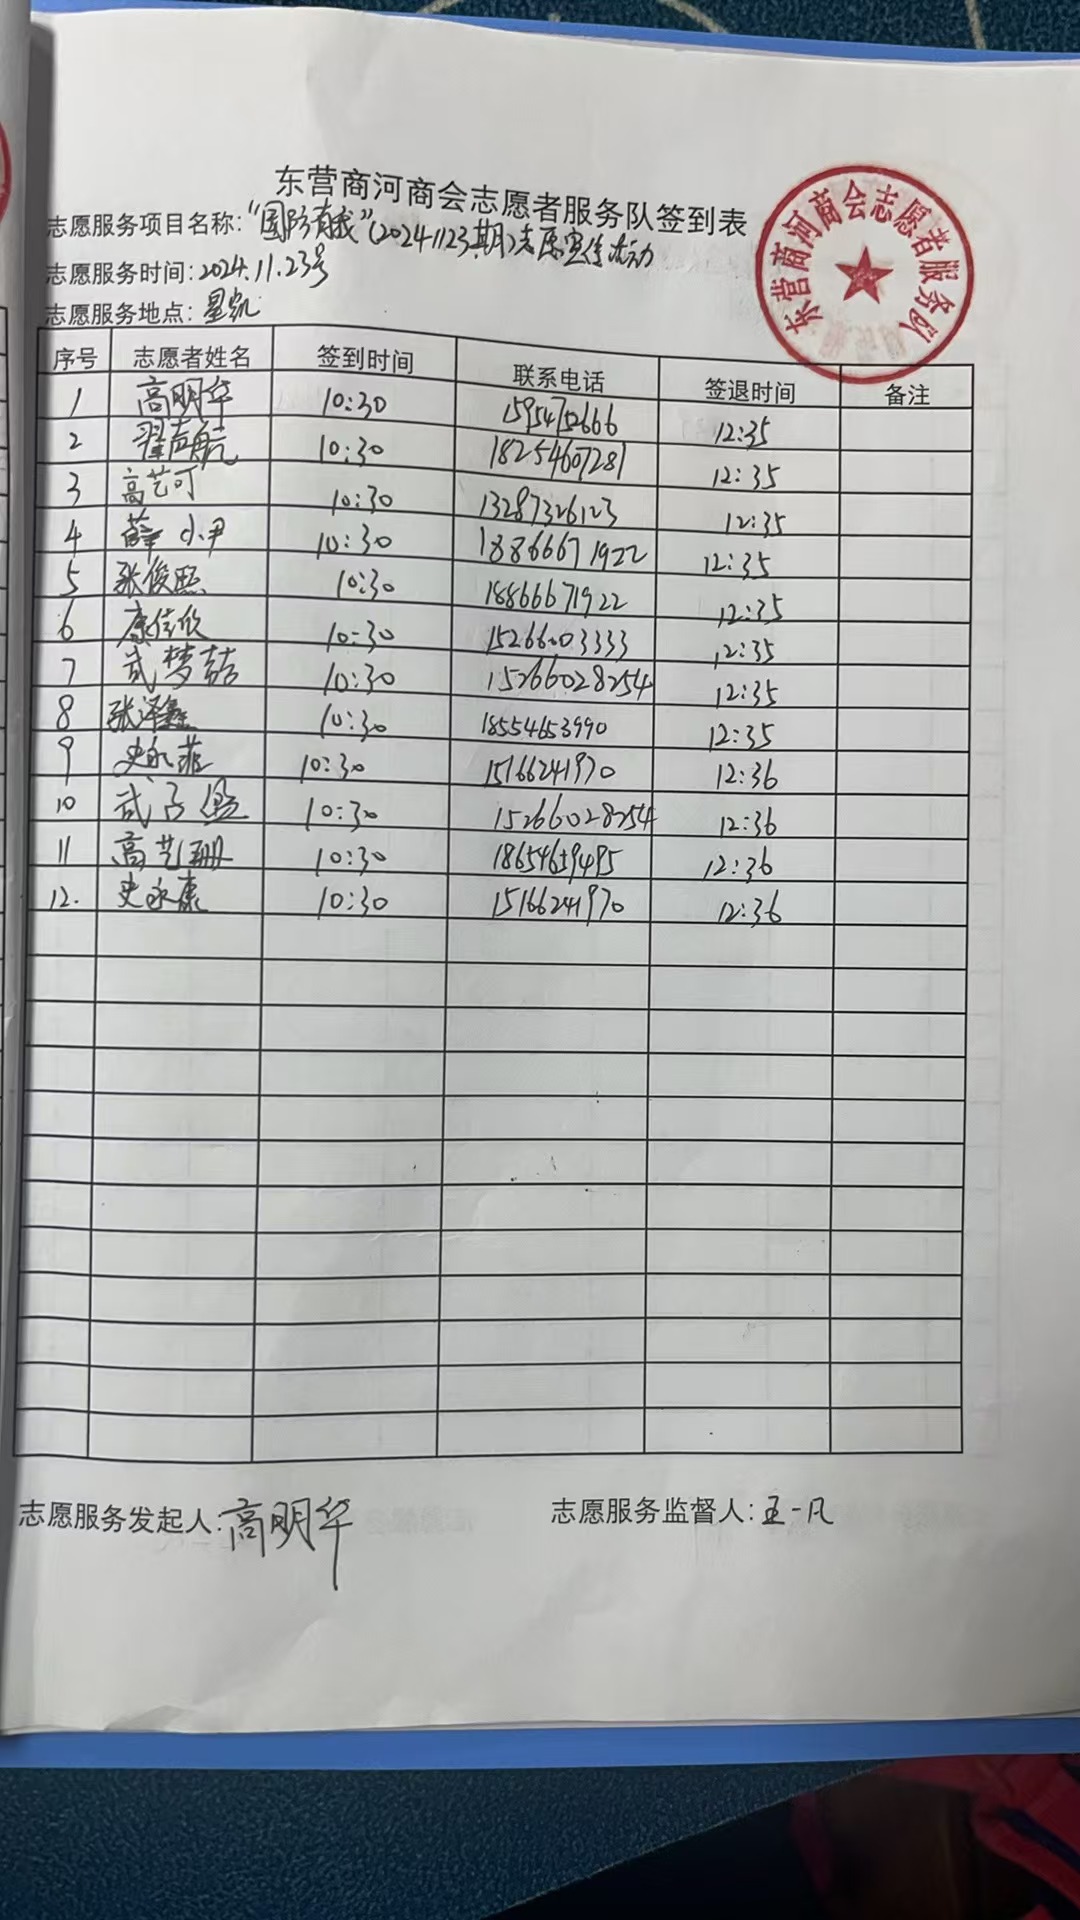 东营商河商会志愿者服务队签到表
志愿服务项目名称:"国防有我"(20241123期)志愿宣传活动
志愿服务时间:2024.11.23号
志愿服务地点:星凯
东营商河商会志愿者服务队
序号 志愿者姓名 签到时间 联系电话 签退时间 备注
1 高明华 10:30 15954752666 12:35
2 翟声航 10:30 18254607281 12:35
3 高艺可 10:30 13287326123 12:35
4 薛小尹 10:30 18866671922 12:35
5 张俊熙 10:30 18866671922 12:35
6 康佳欣 10:30 15266003333 12:35
7 武梦喆 10:30 15266028254 12:35
8 张泽鑫 10:30 18554653990 12:35
9 史永菲 10:30 15166241970 12:36
10 武子 10:30 15266028254 12:36
11 高艺珊 10:30 18654659495 12:36
12. 史永康 10:30 15166241970 12:36
志愿服务发起人:高明华 志愿服务监督人:王一凡